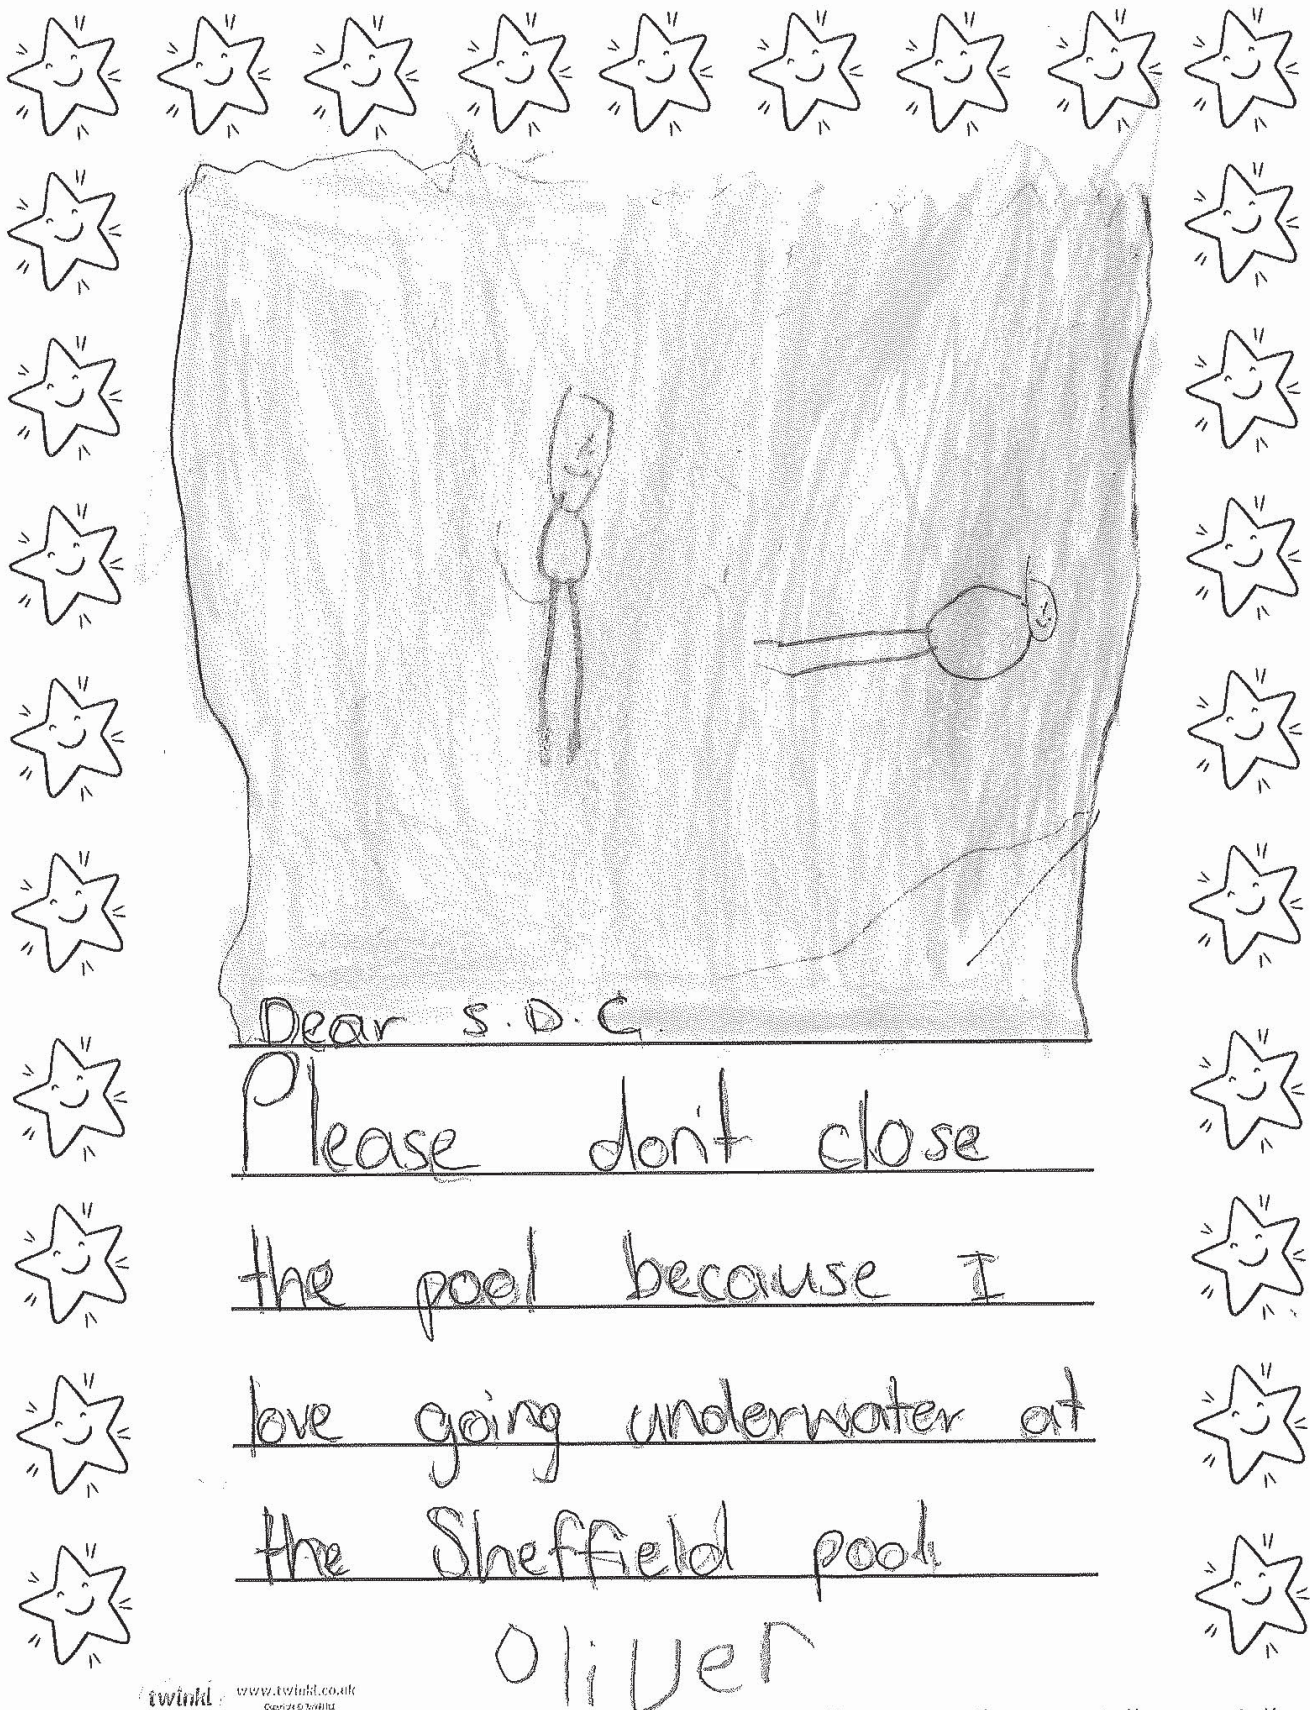 Dear S.D.C.
Please don't close
the pool because I
love going underwater at
the Sheffield pool.
Oliver
twinkl www.twinkl.co.uk